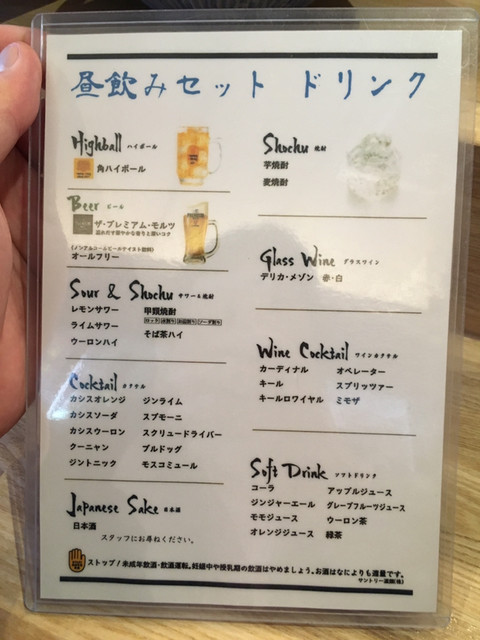 昼飲みセット ドリンク
Highball ハイボール
角ハイボール
Beer ビール
ザ・プレミアム・モルツ
溢れだす華やかな香りと深いコク
(ノンアルコールビールテイスト飲料)
オールフリー
Sour & Shochu サワー&焼酎
レモンサワー
ライムサワー
ウーロンハイ
甲類焼酎
ロック/水割り/お湯割り/ソーダ割り
そば茶ハイ
Cocktail カクテル
カシスオレンジ
カシスソーダ
カシスウーロン
クーニャン
ジントニック
ジンライム
スプモーニ
スクリュードライバー
ブルドッグ
モスコミュール
Japanese Sake 日本酒
日本酒
スタッフにお尋ねください。
Shochu 焼酎
芋焼酎
麦焼酎
Glass Wine グラスワイン
デリカ・メゾン 赤・白
Wine Cocktail ワインカクテル
カーディナル
キール
キールロワイヤル
オペレーター
スプリッツァー
ミモザ
Soft Drink ソフトドリンク
コーラ
ジンジャーエール
モモジュース
オレンジジュース
アップルジュース
グレープフルーツジュース
ウーロン茶
緑茶
ストップ!未成年飲酒・飲酒運転。妊娠中や授乳期の飲酒はやめましょう。お酒はなによりも適量です。
サントリー酒類(株)